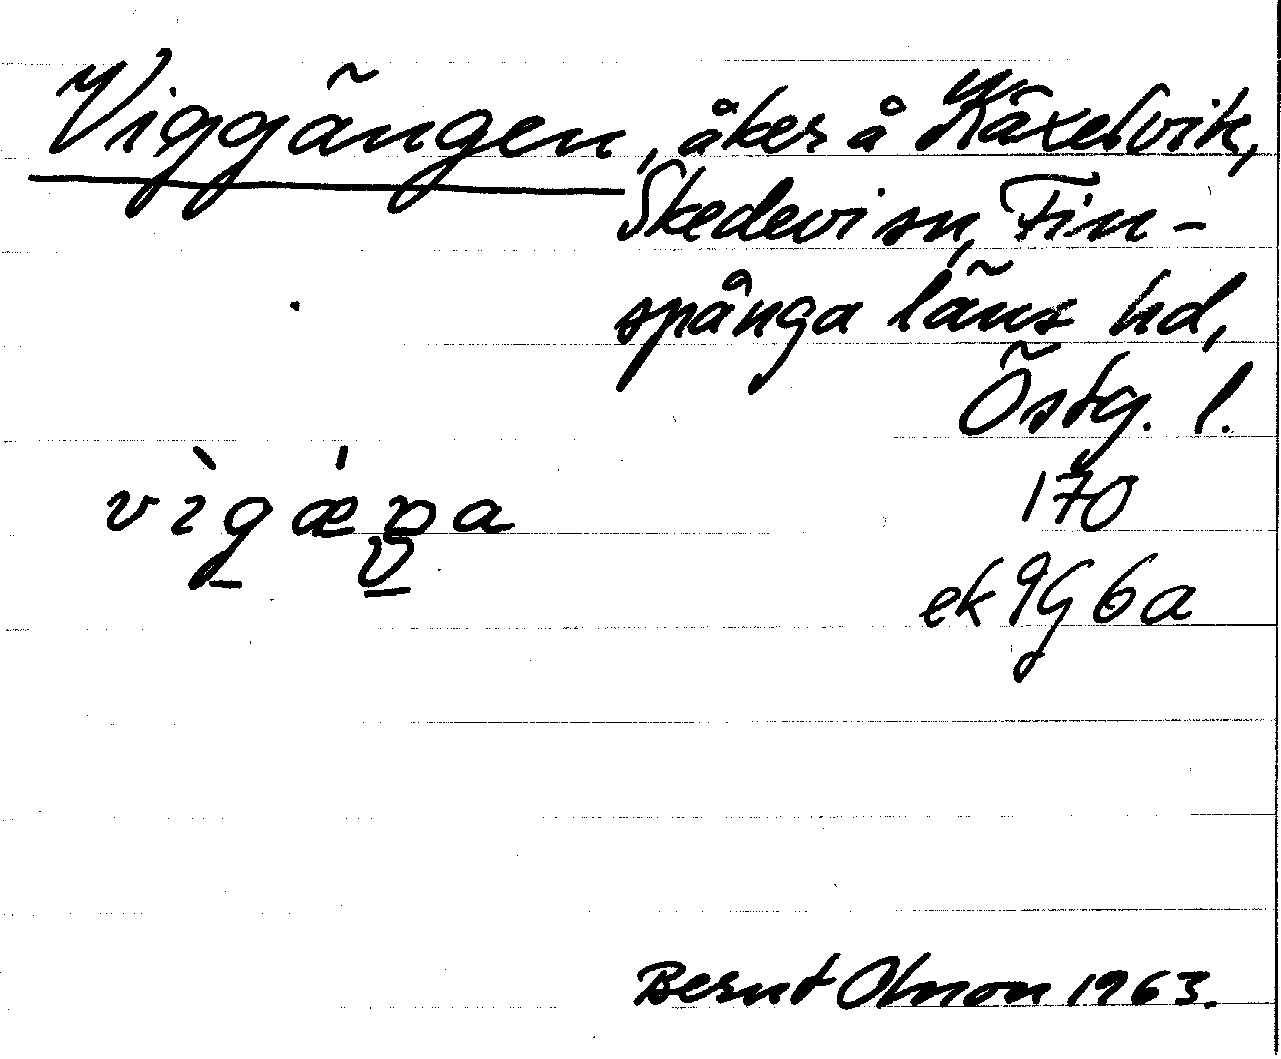 Viggängen, åker å Käxelvik,
Skedevi sn, Fin-
spånga läns hd,
Östg. l.
170
ek 9G 6a
Bernt Olsson 1963.